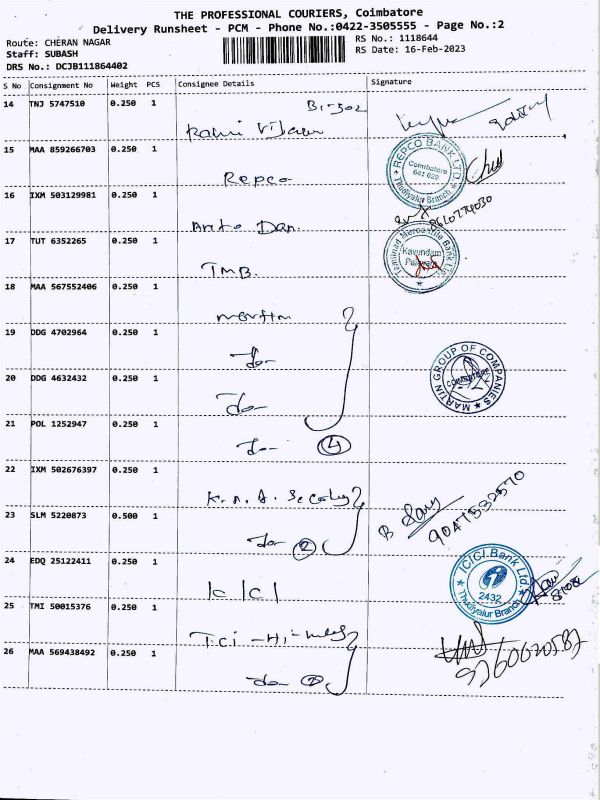 THE PROFESSIONAL COURIERS, Coimbatore
Delivery Runsheet - PCM - Phone No.:0422-3505555 - Page No.:2
Route: CHERAN NAGAR
RS No.: 1118644
Staff: SUBASH
RS Date: 16-Feb-2023
DRS No.: DCJB111864402
S No Consignment No Weight PCS Consignee Details Signature
14 TNJ 5747510 0.250 1
B1-302
15 MAA 859266703 0.250 1
Repco
REPCO BANK LTD
Coimbatore
641 029
Thudiyalur Branch
16 IXM 503129981 0.250 1
Anto Dan.
17 TUT 6352265 0.250 1
TMB.
Tamilnad Mercantile Bank Ltd
Kavundam
18 MAA 567552406 0.250 1
Martin
19 DDG 4702964 0.250 1
do
20 DDG 4632432 0.250 1
do
MARTIN GROUP OF COMPANIES
COIMBATORE
21 POL 1252947 0.250 1
do 4
22 IXM 502676397 0.250 1
23 SLM 5220873 0.500 1
do 2
9047532570
24 EDQ 25122411 0.250 1
ICICI
ICICI Bank Ltd
2432
Thudiyalur Branch
25 TMI 50015376 0.250 1
26 MAA 569438492 0.250 1
do 2